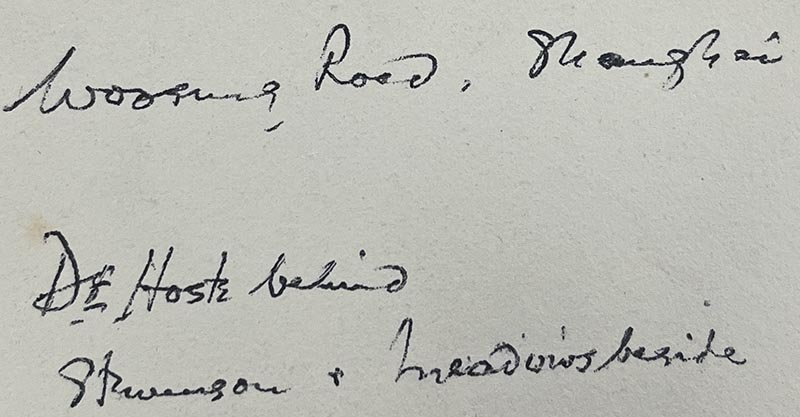 Woosung Road, Shanghai
DE Hoste behind
Stevenson + Meadows beside